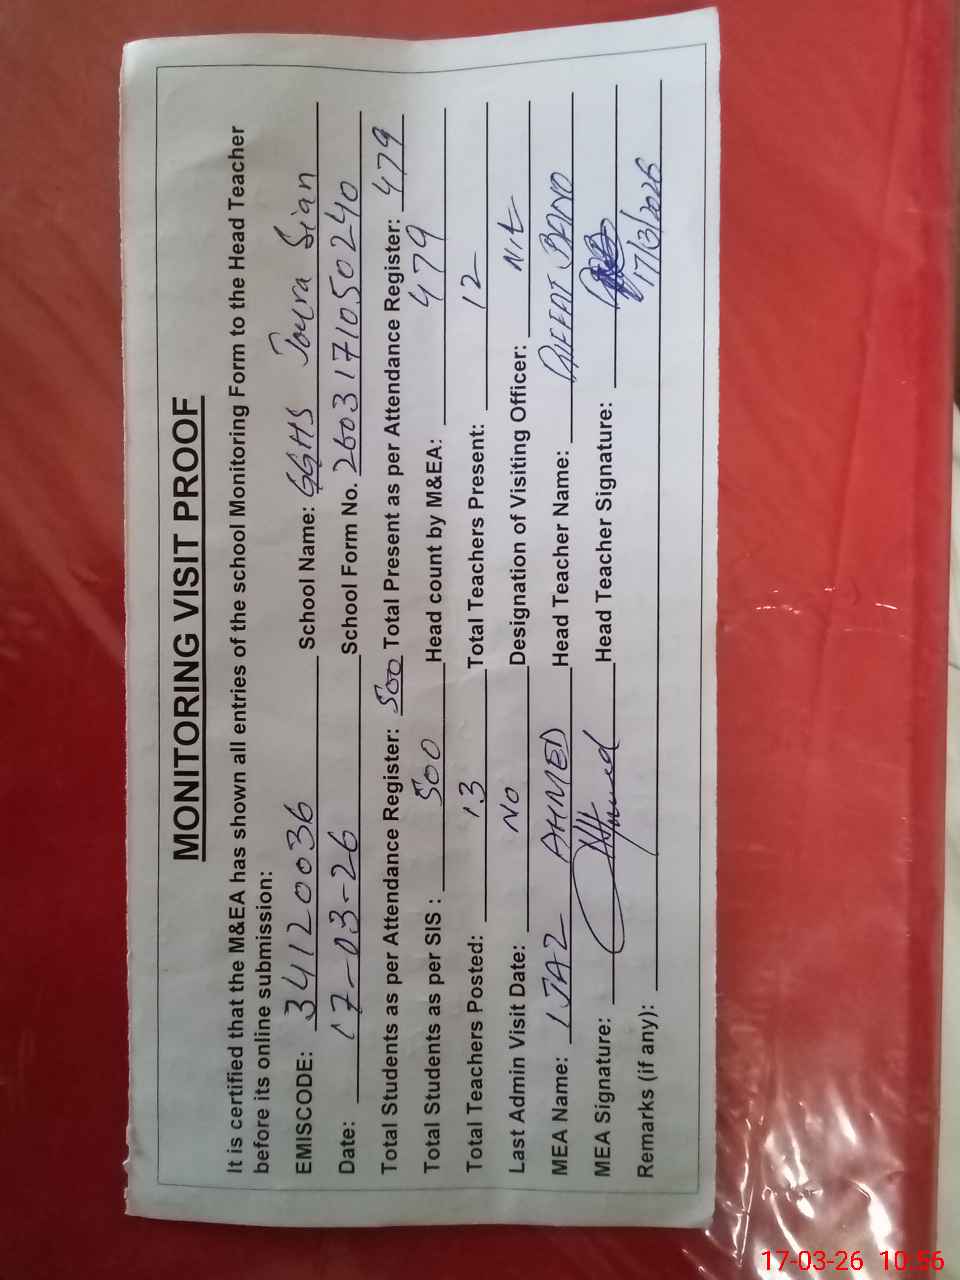 MONITORING VISIT PROOF
It is certified that the M&EA has shown all entries of the school Monitoring Form to the Head Teacher
before its online submission:
EMISCODE: 34120036 School Name: GGHS Joura Sian
Date: 17-03-26 School Form No. 2603171050240
Total Students as per Attendance Register: 500 Total Present as per Attendance Register: 479
Total Students as per SIS : 500 Head count by M&EA: 479
Total Teachers Posted: 13 Total Teachers Present: 12
Last Admin Visit Date: No Designation of Visiting Officer: NIL
MEA Name: IJAZ AHMED Head Teacher Name: RIFFAT BANO
MEA Signature: Head Teacher Signature:
Remarks (if any): 17/3/2026
17-03-26 10:56